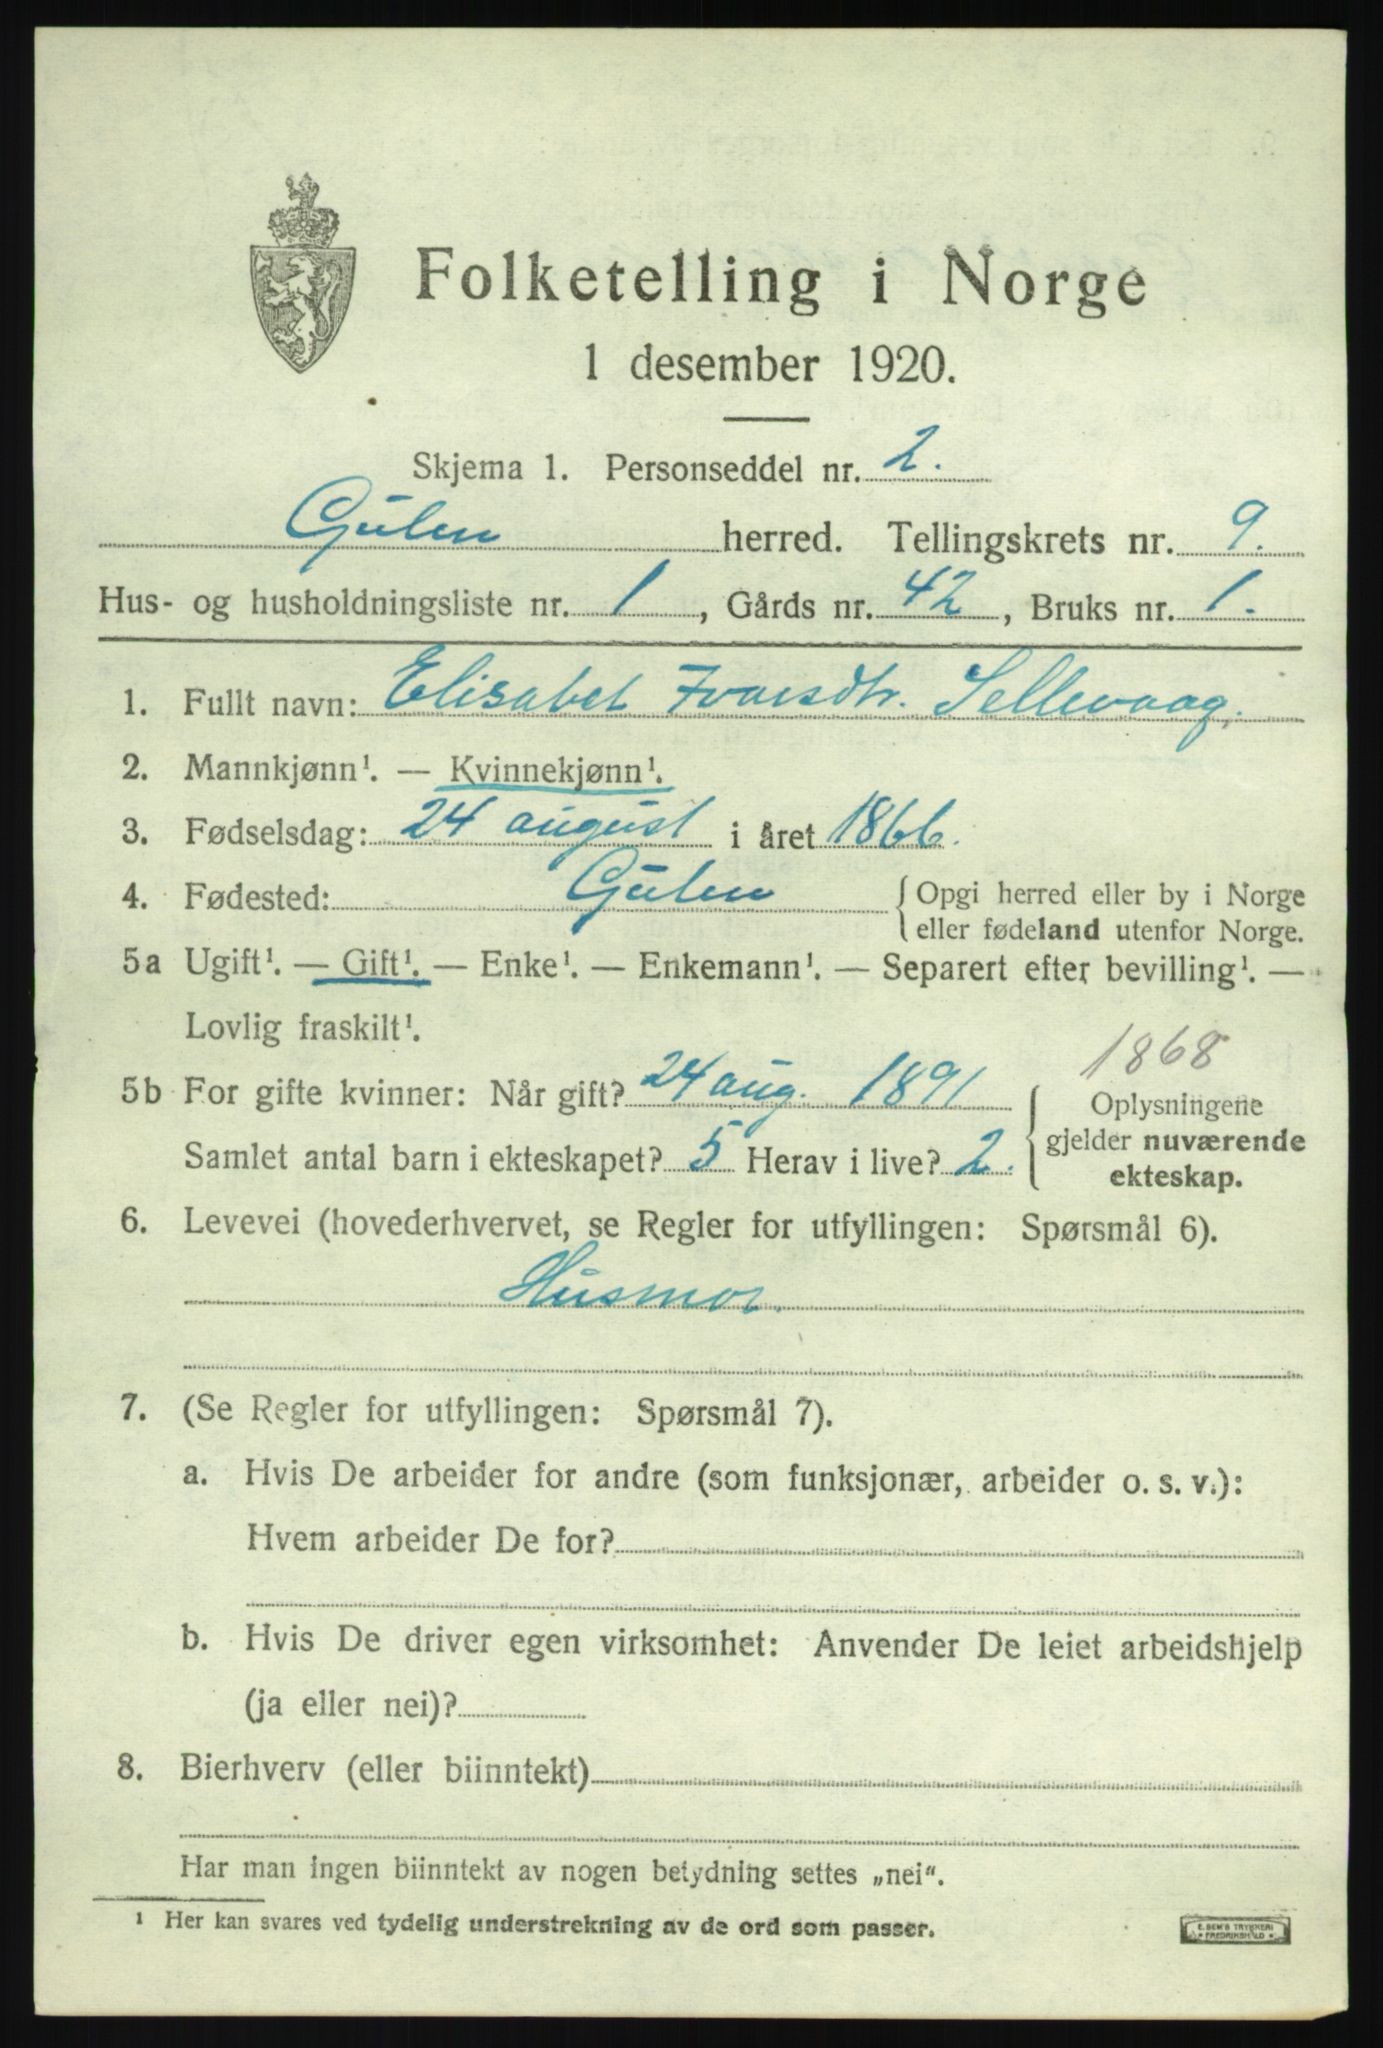 Folketelling i Norge
1 desember 1920.
Skjema 1. Personseddel nr. 2.
Gulen herred. Tellingskrets nr. 9.
Hus- og husholdningsliste nr. 1, Gårds nr. 42, Bruks nr. 1.
1. Fullt navn: Elisabet Ivarsdtr. Sellevaag.
2. Mannkjønn¹. — Kvinnekjønn¹.
3. Fødselsdag: 24 august i året 1866.
4. Fødested: Gulen { Opgi herred eller by i Norge
eller fødeland utenfor Norge.
5a Ugift¹. — Gift¹. — Enke¹. — Enkemann¹. — Separert efter bevilling¹. —
Lovlig fraskilt¹.
1868
5b For gifte kvinner: Når gift? 24 aug. 1891 { Oplysningene
gjelder nuværende
Samlet antal barn i ekteskapet? 5 Herav i live? 2. ekteskap.
6. Levevei (hovederhvervet, se Regler for utfyllingen: Spørsmål 6).
Husmor.
7. (Se Regler for utfyllingen: Spørsmål 7).
a. Hvis De arbeider for andre (som funksjonær, arbeider o. s. v.):
Hvem arbeider De for?
b. Hvis De driver egen virksomhet: Anvender De leiet arbeidshjelp
(ja eller nei)?
8. Bierhverv (eller biinntekt)
Har man ingen biinntekt av nogen betydning settes „nei“.
¹ Her kan svares ved tydelig understrekning av de ord som passer.
E. SEM'S TRYKKERI
FREDRIKSHALD